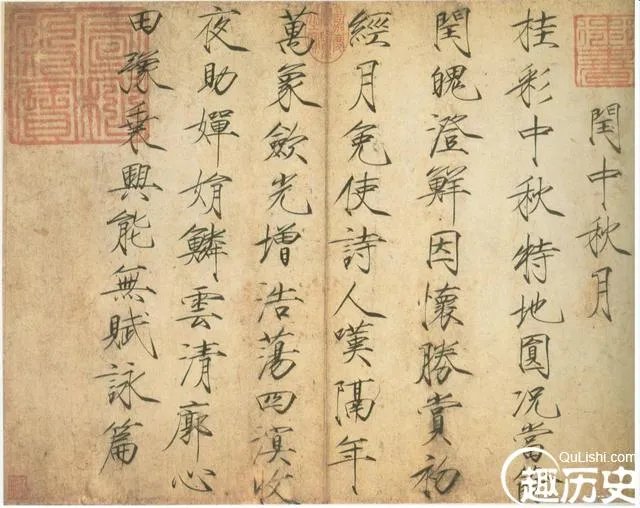 閏中秋月
桂彩中秋特地圓況當餘
閏魄澄鮮因懷勝賞初
經月免使詩人嘆隔年
萬象歛光增浩蕩四溟收
夜助嬋娟鱗雲清廓心
田豫乘興能無賦詠篇
御書
QuLishi.com
趣历史